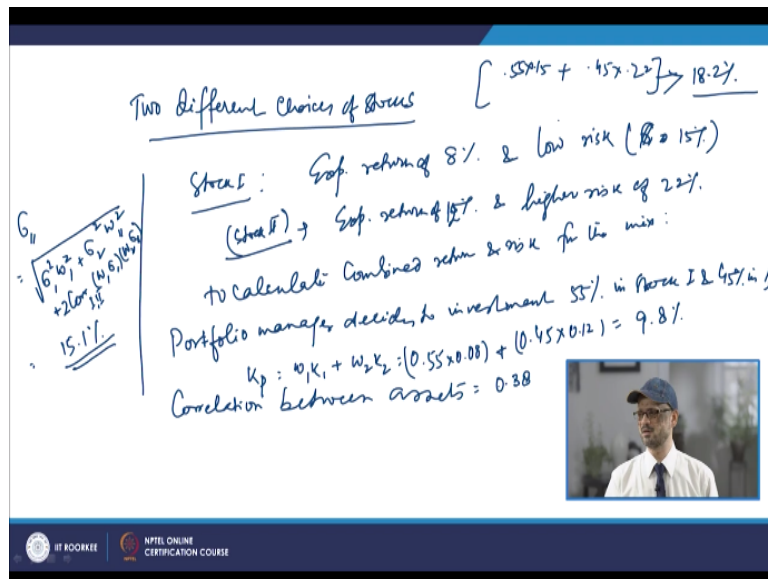 [ .55×15 + .45×.22 ] → 18.2%.
Two different Choices of Stocks
Stock I : Exp. return of 8%. & Low risk ( 15%)
(Stock II) → Exp. return of 12%. & higher risk of 22%.
to calculate Combined return & risk for the mix :
Portfolio manager decides to investment 55% in Stock I & 45% in
Kp = w1K1 + w2K2 = (0.55×0.08) + (0.45×0.12) = 9.8%
Correlation between assets = 0.38
= √σ1²w1² + σ2²w2²
+2Cor (w1σ1)(w2σ2)
= 15.1%
IIT ROORKEE
NPTEL ONLINE
CERTIFICATION COURSE